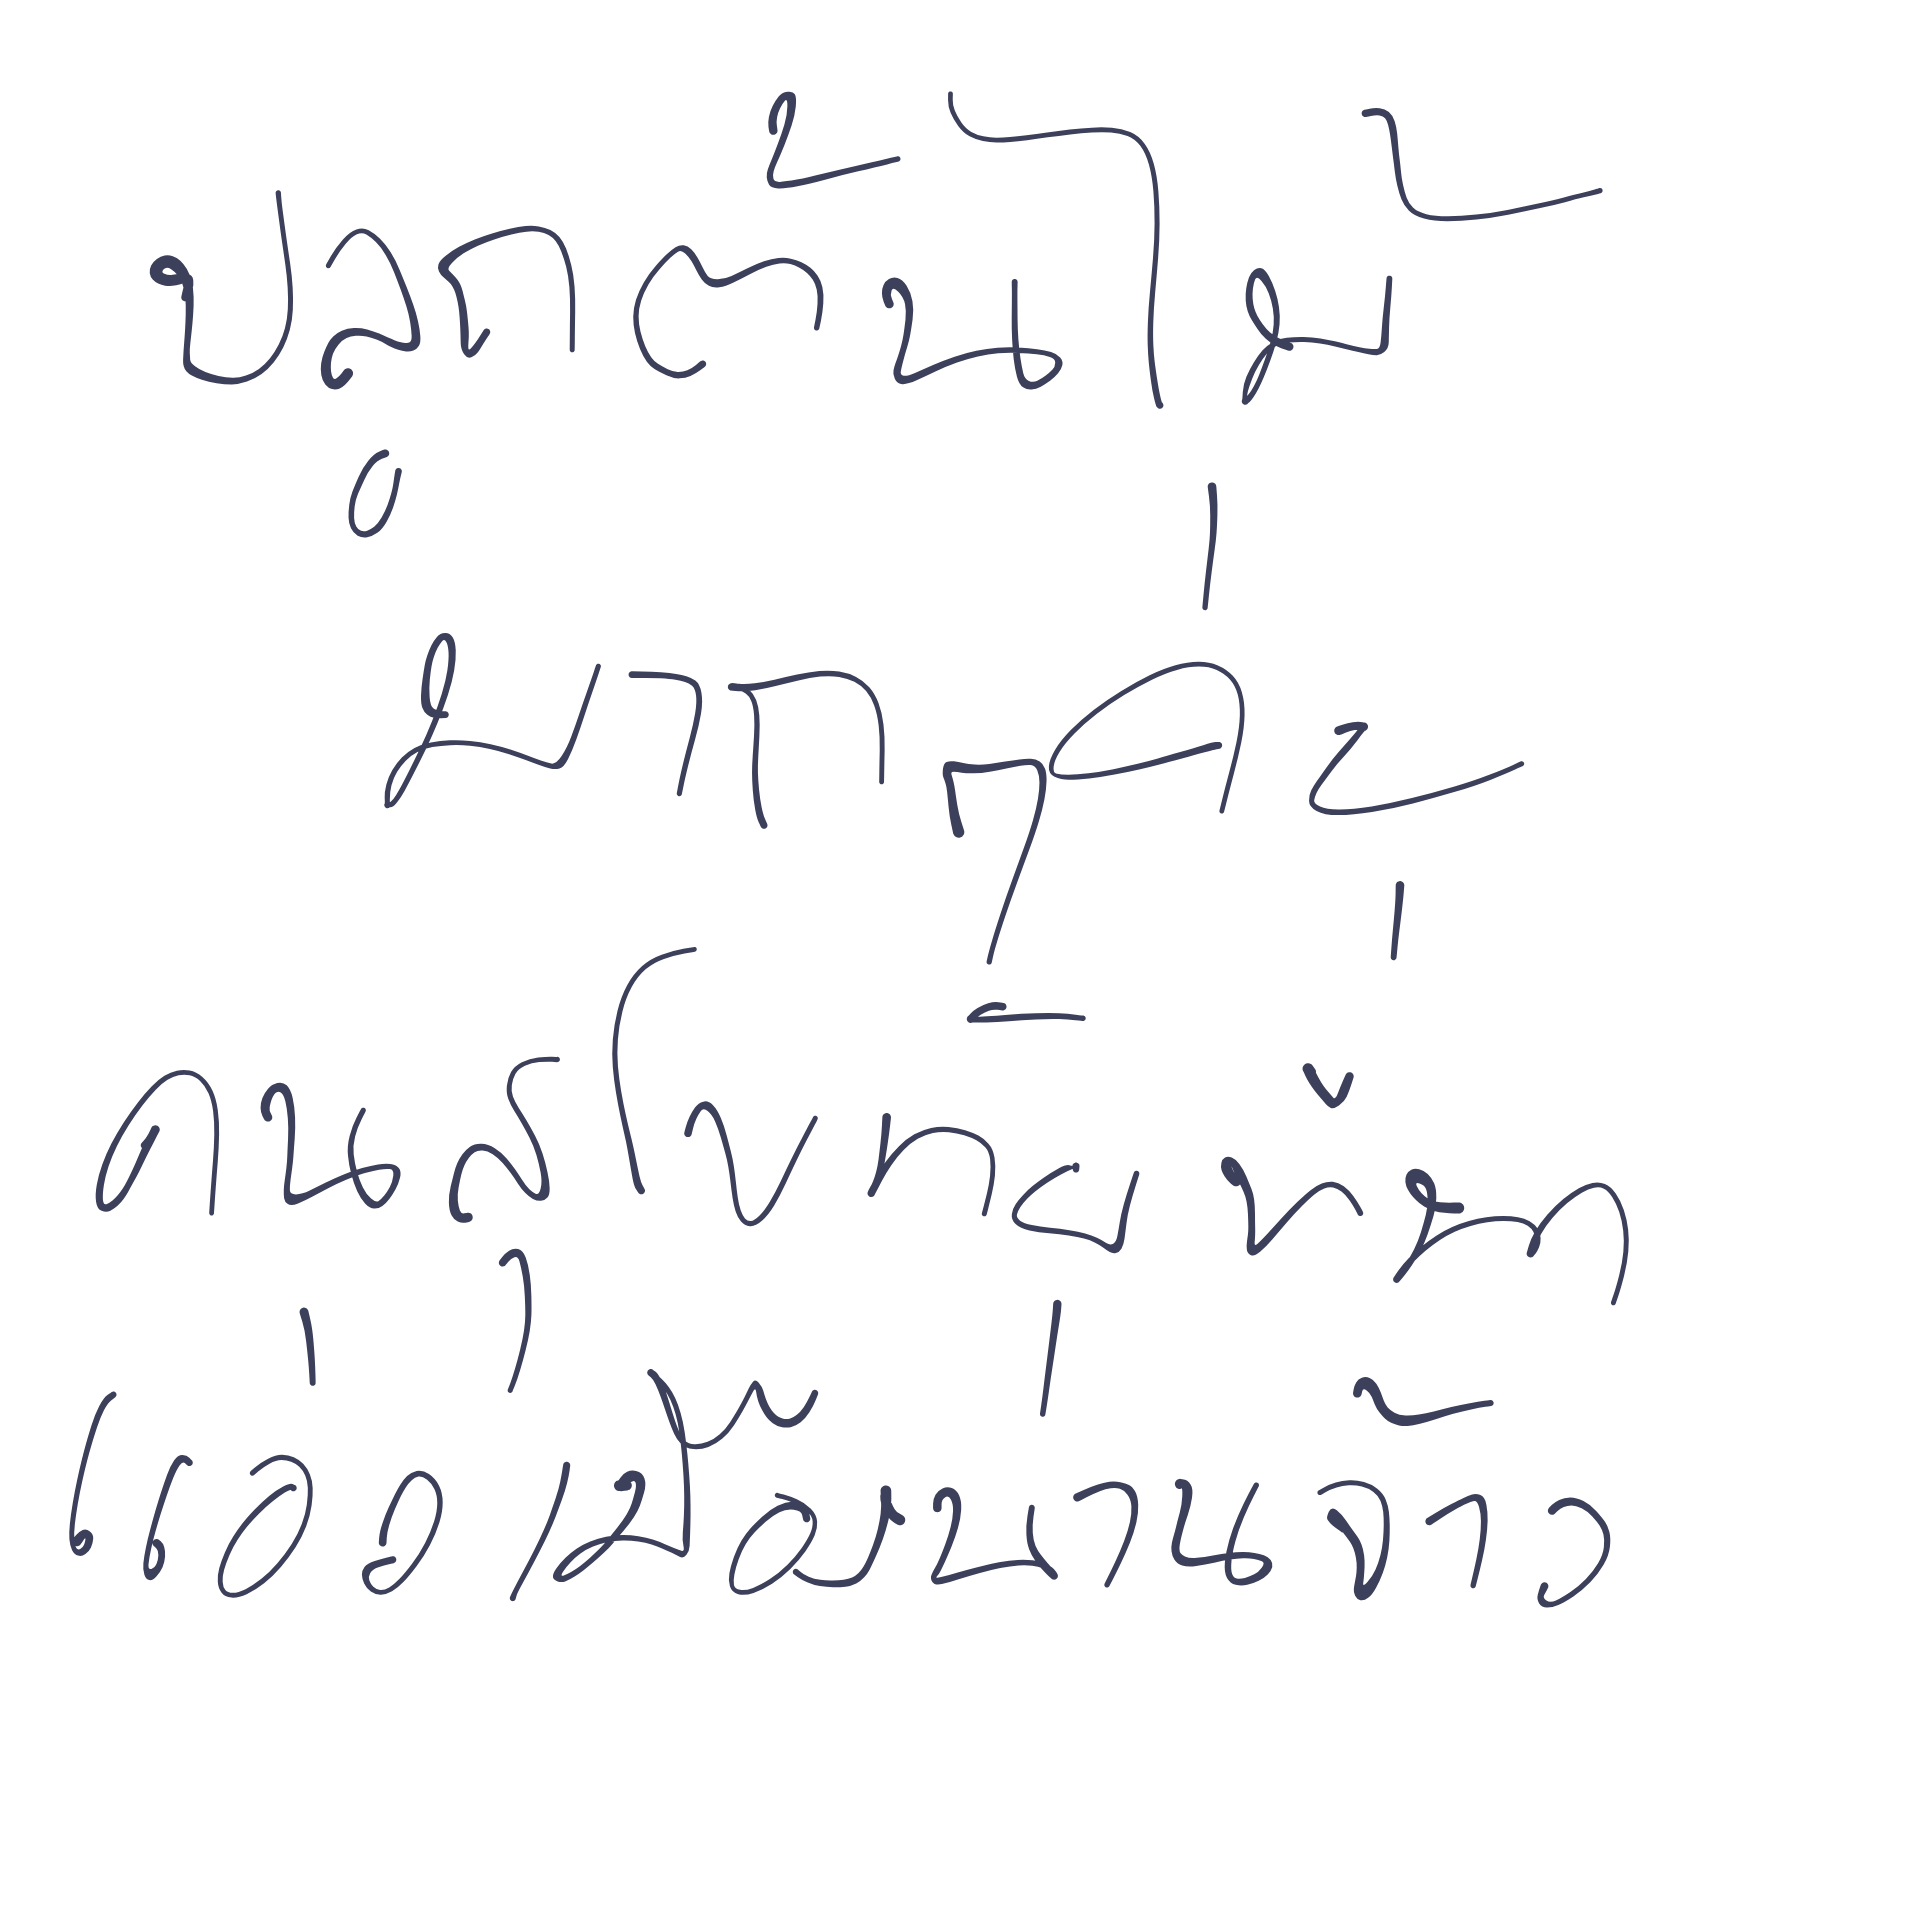 ปลูกต้นไม้
มากๆค่ะ
คนสุโขทัย
แอ่วเมืองน่านจ้าว